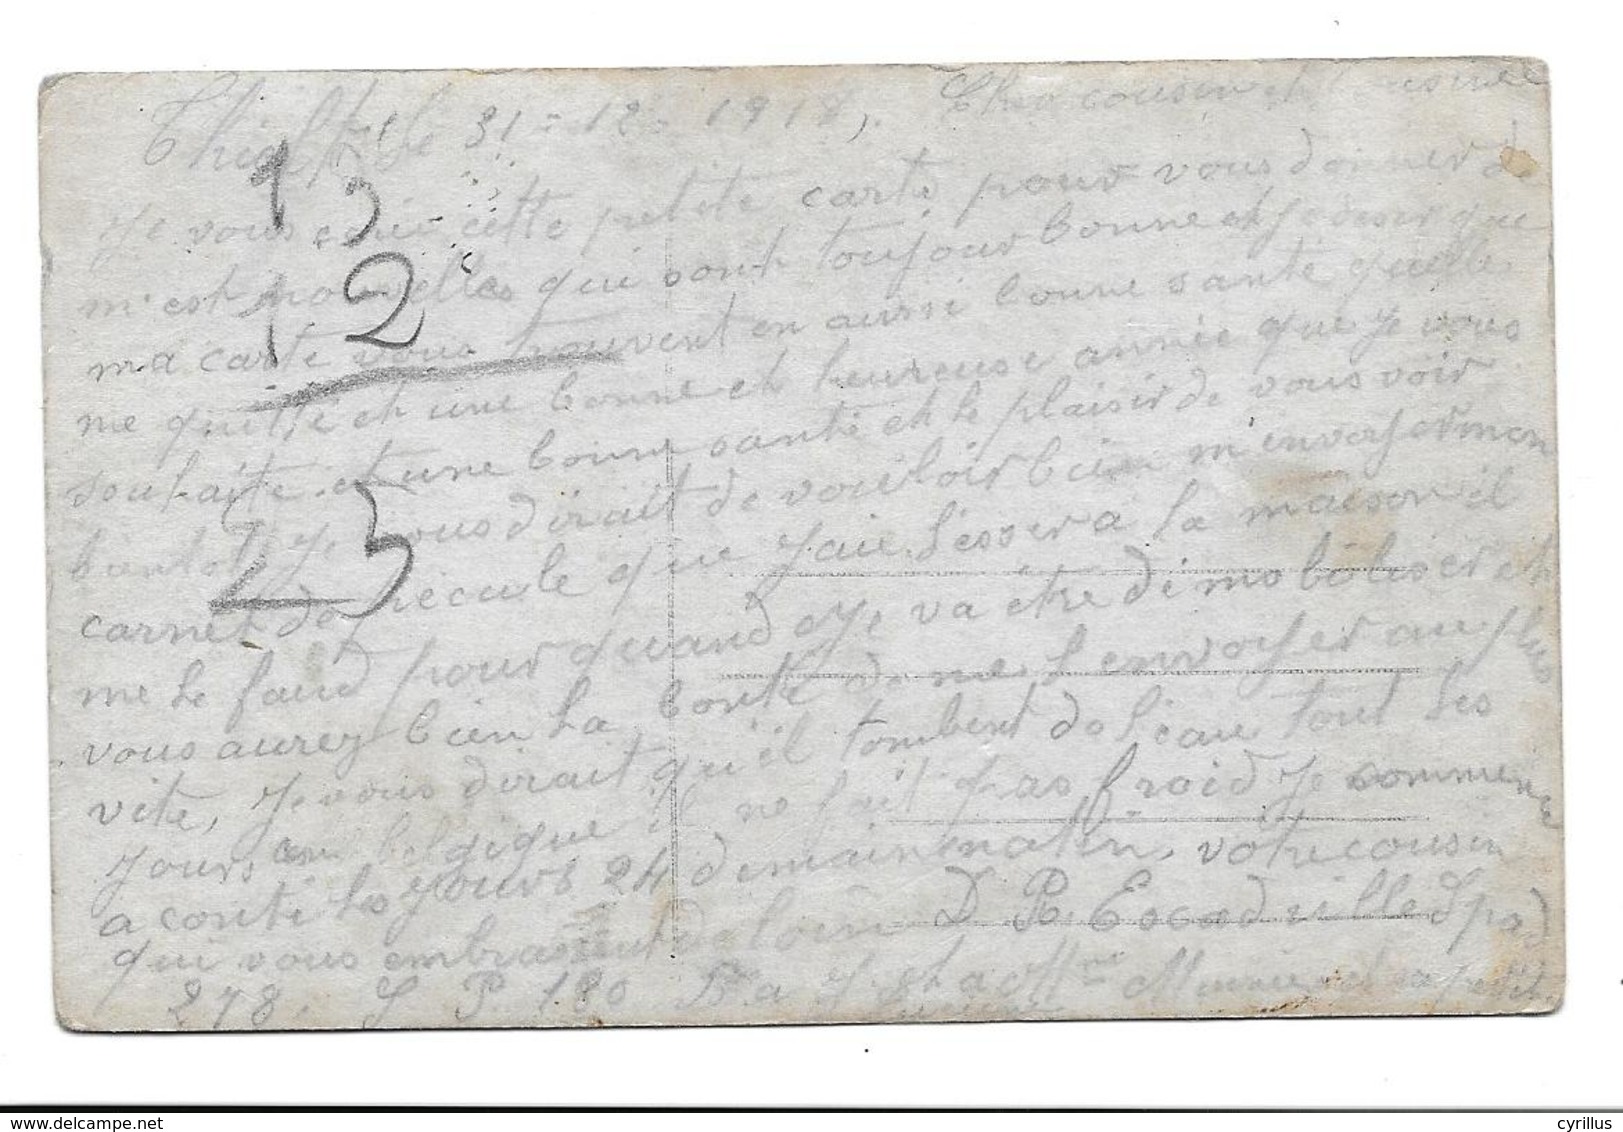 le 31 = 12 = 1918, Cher cousin et Cousine
Je vous cette petite carte pour vous donner de
m'est nouvelles qui sont toujour bonne et je desir que
ma carte vous trouvent en aussi bonne santé quelle
me quitte et une bonne et heureuse année que je vous
souhaite et une bonne santé et le plaisir de vous voir
bientot Je vous dirait de vouloir bien m'envoyer mon
carnet de que jaie lesser a la maison il
me le faud pour quand Je va être dimobiliser et
vous aurez bien la bonté de me l'envoyer au plus
vite, Je vous dirait qu'il tombent de l'eau tout les
jours en belgique il ne fait pas froid Je commence
a conté les jours 24 demain matin, votre cousin
qui vous embrassent de loin D R.
278. S P. 180
1 2
2 5
cyrillus